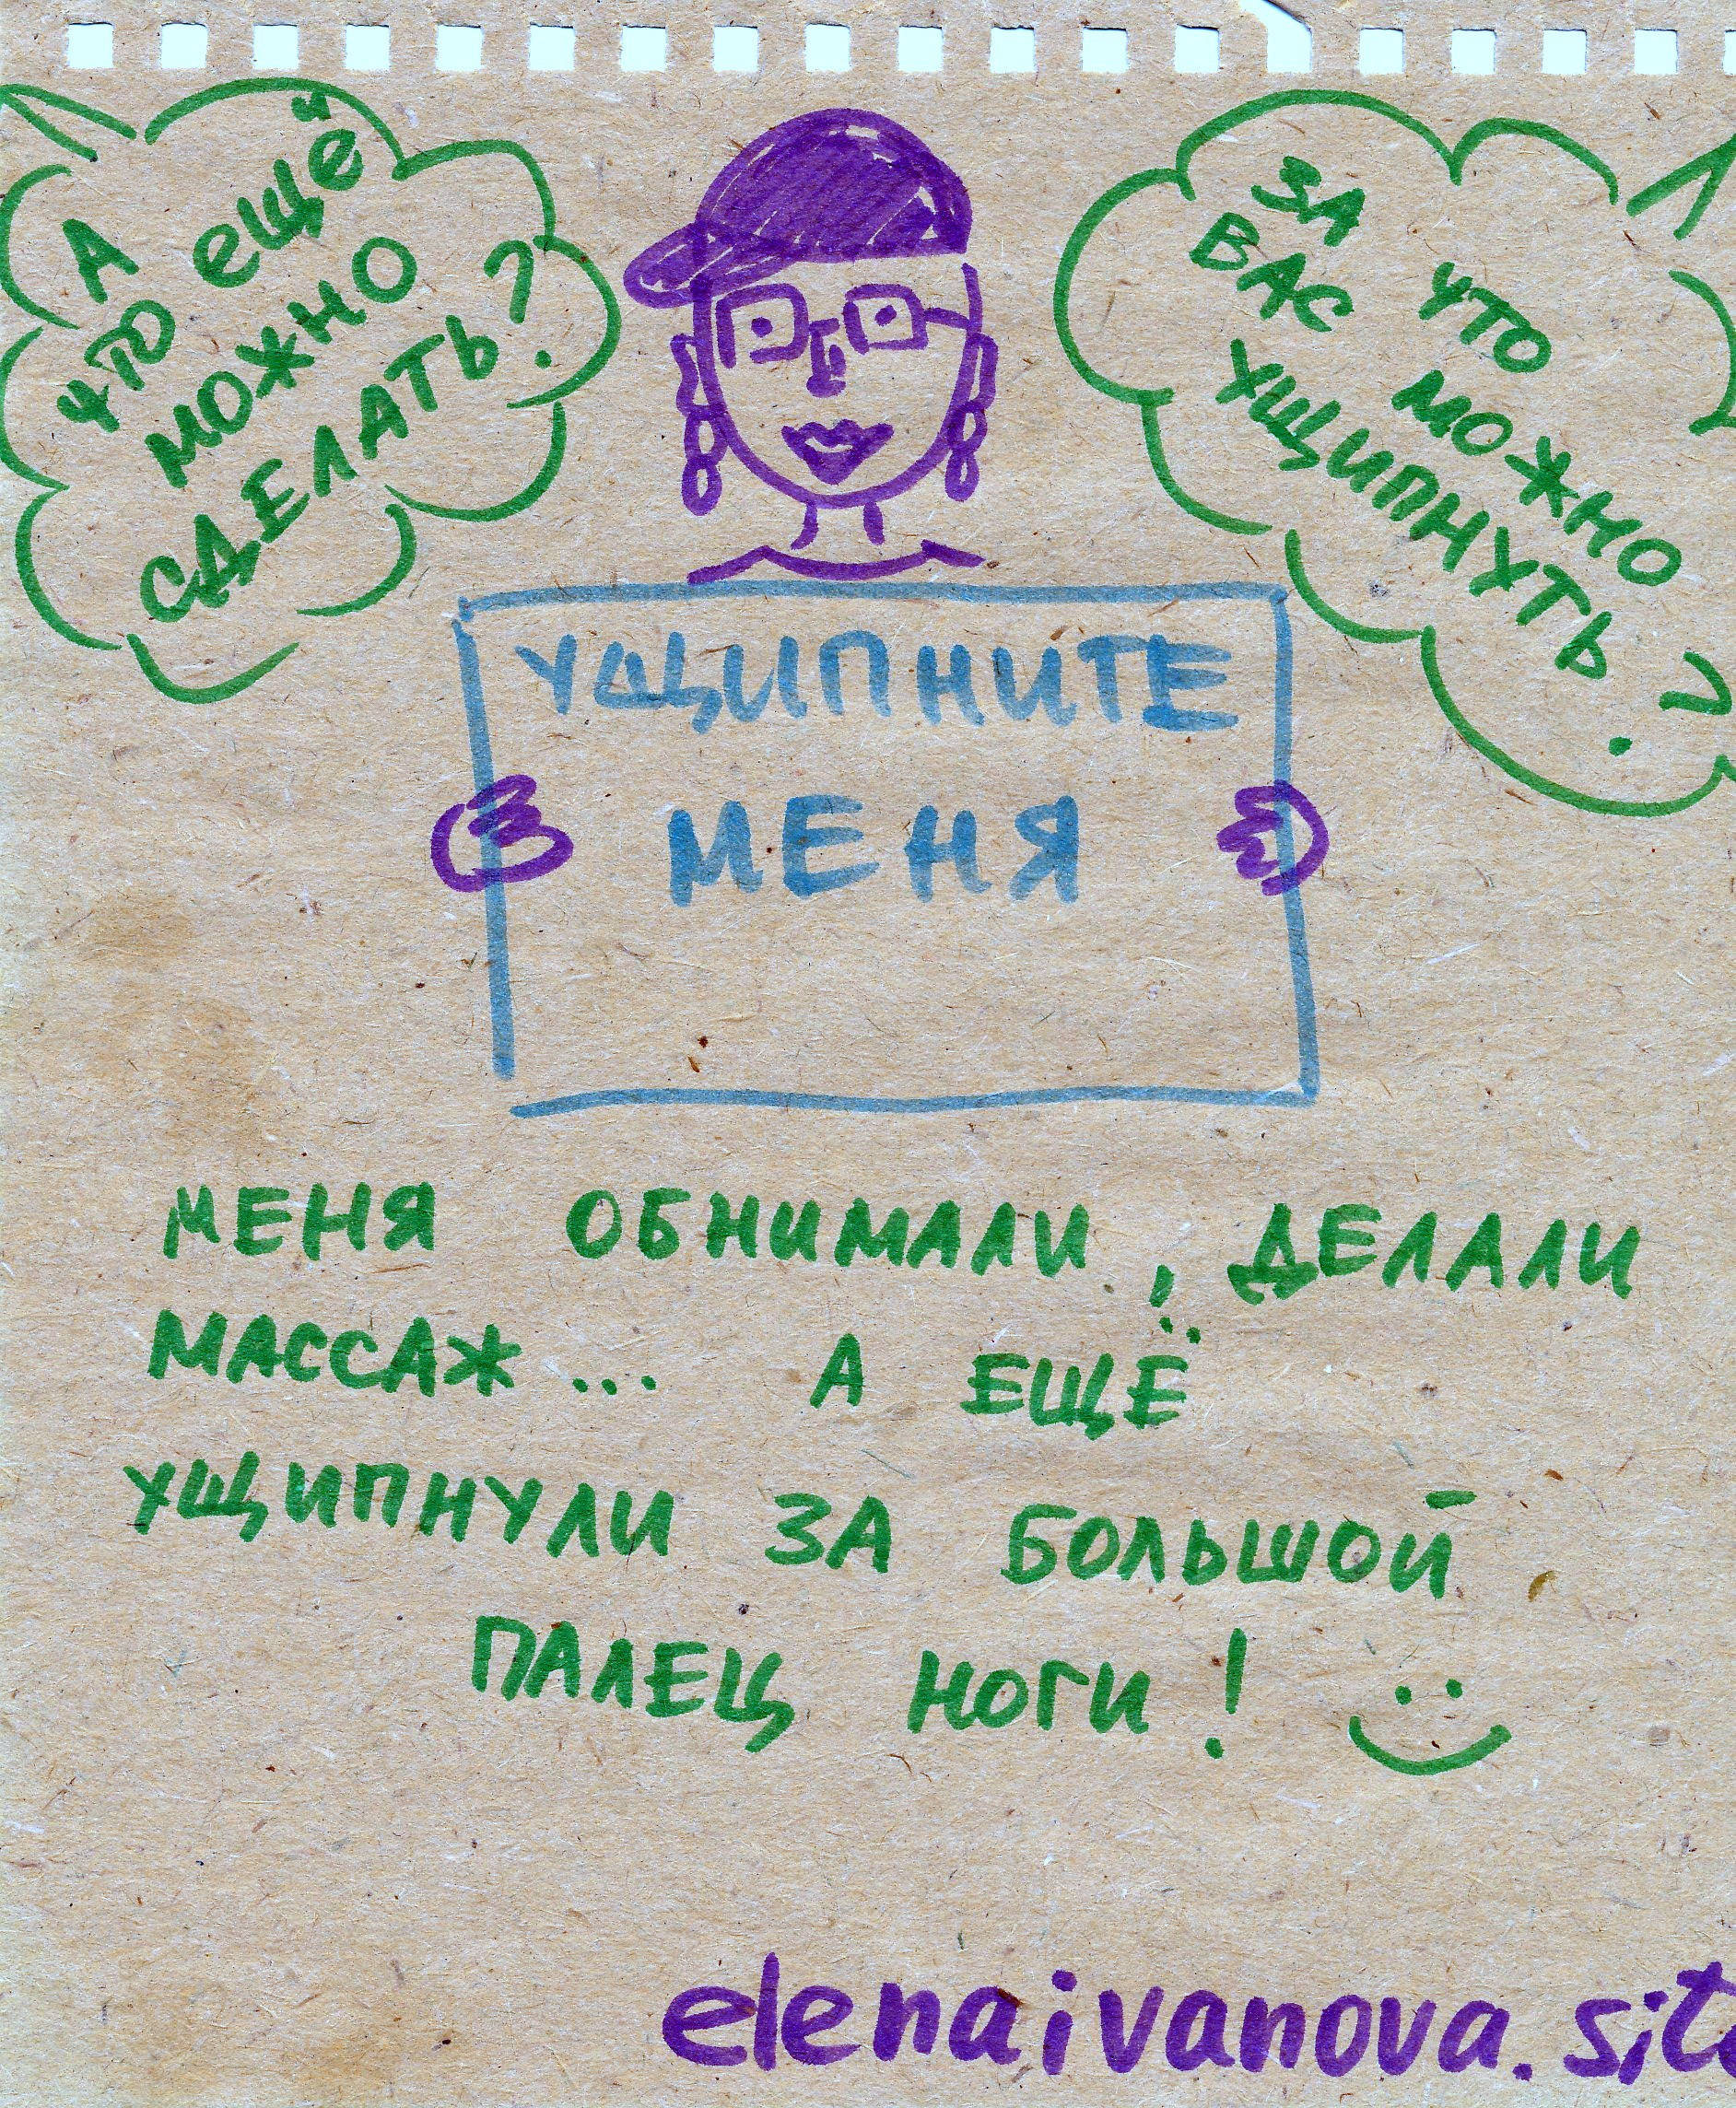 А
что ещё
можно
сделать?
За что
вас можно
ущипнуть?
Ущипните
меня
Меня обнимали, делали
массаж... А ещё
ущипнули за большой
палец ноги!
elenaivanova.sit